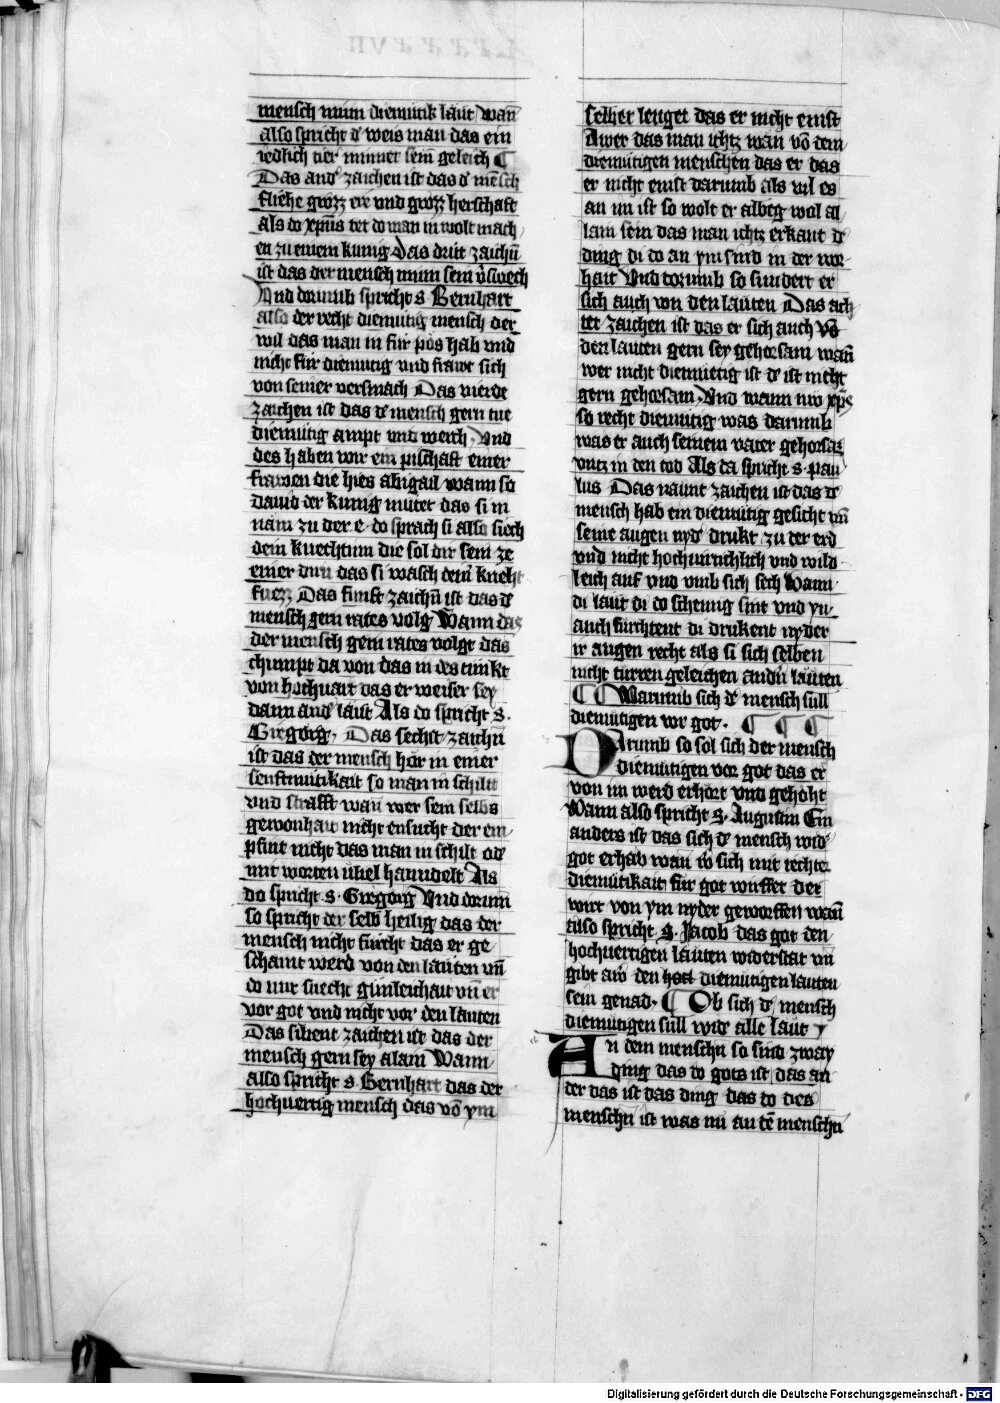 mensch minn diemutik laut wan̄
also spricht d' weis man das ein
iedlich tier minnet sein geleich ¶
Das and' zaichen ist das d' mēsch
fliehe grozz ere vnd grozz herschaft
als do xp̄us tet do man in wolt mach
en zu einem kunig Das drit zaichn̄
ist das der mensch minn sein
Vnd dorumb spricht s Bernhart
also der recht diemutig mensch der
wil das man in für pos hab vnd
nicht für diemutig vnd frawt sich
von seiner versmach Das vierde
zaichen ist das d' mensch gern tue
diemutig ampt vnd werch Vnd
des haben wir ein pischaft einer
frawen die hies abigail wann so
dauid der kunig mutet das si in
nam zu der e do sprach si also siech
dein knechtinn die sol dir sein ze
einer dirn das si wasch dein' knecht
fuez Das fimft zaichn̄ ist das d'
mensch gern rates volg Wann das
der mensch gern rates volgt das
chumpt da von das in des timkt
von hochuart das er weiser sey
dann and' laut Als do spricht s.
Gregorig Das sechst zaichn
ist das der mensch hör in einer
senftmutikait so man in schilt
vnd strafft wan wer sein selbs
gewonhait nicht ensucht der em
pfint nicht das man in schilt od'
mit worten übel handelt Als
do spricht s. Gregorg Vnd dorum
so spricht der selb heilig das der
mensch nicht fürcht das er ge
schamt werd von den läuten vn̄
do mit suecht günleichait vn̄ er
vor got vnd nicht vor den läuten
Das sibent zaichen ist das der
mensch gern sey alain Wann
also spricht s Bernhart das der
hochuertig mensch das vō ym
selber leuget das er nicht enist
Awer das man ichtz wan vō dem
diemütigen menschen das er das
er nicht enist darumb als vil es
an im ist so wolt er albeg wol al
lain sein das man ichtz erkant d'
ding di do an ym sind in der wor
hait Vnd dorumb so sundert er
sich auch von den läuten Das ach
tet zaichen ist das er sich auch vō
den läuten gern sey gehorsam wan̄
wer nicht diemuetig ist d' ist nicht
gern gehorsam Vnd wann nw xp̄s
so recht diemütig was darumb
was er auch seinem vater gehorsam
vntz in den tod Als da spricht s pau
lus Das naunt zaichen ist das d'
mensch hab ein diemütig gesicht vn̄
seine augen nyd' drukt zu der erd
vnd nicht hochuertichlich vnd wild
leich auf vnd vmb sich sech Wann
di läut di do scheinig sint vnd yn
auch fürchtent di drukent nyder
ir augen recht als si sich selben
nicht türren geleichen andn̄ läuten
¶ ¶ Warumb sich d' mensch sull
diemütigen vor got. ¶ ¶ ¶
Darumb so sol sich der mensch
diemütigen vor got das er
von im werd erhört vnd gehöht
Wann also spricht s. Augustin Ein
anders ist das sich d' mensch wid'
got erhab wan w' sich mit rechter
diemütikait für got wirffet der
wirt von ym nyder geworffen wan̄
also spricht s. Jacob das got den
hochuertigen läuten widerstat vn̄
gibt aw den hoch diemütigen läuten
sein genad. ¶ Ob sich d' mensch
diemütigen süll wid' alle läut
An dem menschn so sind zway
ding das do gots ist das an
der das ist das ding das do des
menschn ist was nu an dē menschn
Digitalisierung gefördert durch die Deutsche Forschungsgemeinschaft - DFG